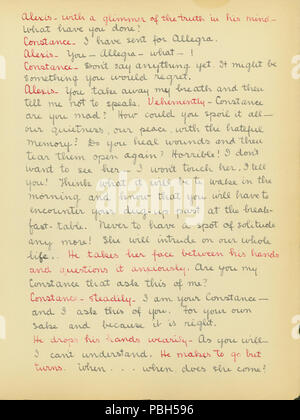 Alexis - with a glimmer of the truth in his mind -
What have you done!
Constance - I have sent for Allegra.
Alexis - You - Allegra - what - !
Constance - Don't say anything yet. It might be
something you would regret.
Alexis - You take away my breath and then
tell me not to speak. Vehemently - Constance
are you mad? How could you spoil it all -
our quietness, our peace, with the hateful
memory? Do you heal wounds and then
tear them open again? Horrible! I don't
want to see her - I won't touch her, I tell
you! Think what it will be to wake in the
morning and know that you will have to
encounter your dug-up past at the break-
fast-table. Never to have a spot of solitude
any more! She will intrude on our whole
life.. He takes her face between his hands
and questions it anxiously. Are you my
Constance that asks this of me?
Constance - steadily - I am your Constance -
and I ask this of you. For your own
sake and because it is right.
He drops his hands wearily - As you will -
I can't understand. He makes to go but
turns. When . . . when does she come?
alamy
Image ID: PBH596
www.alamy.com